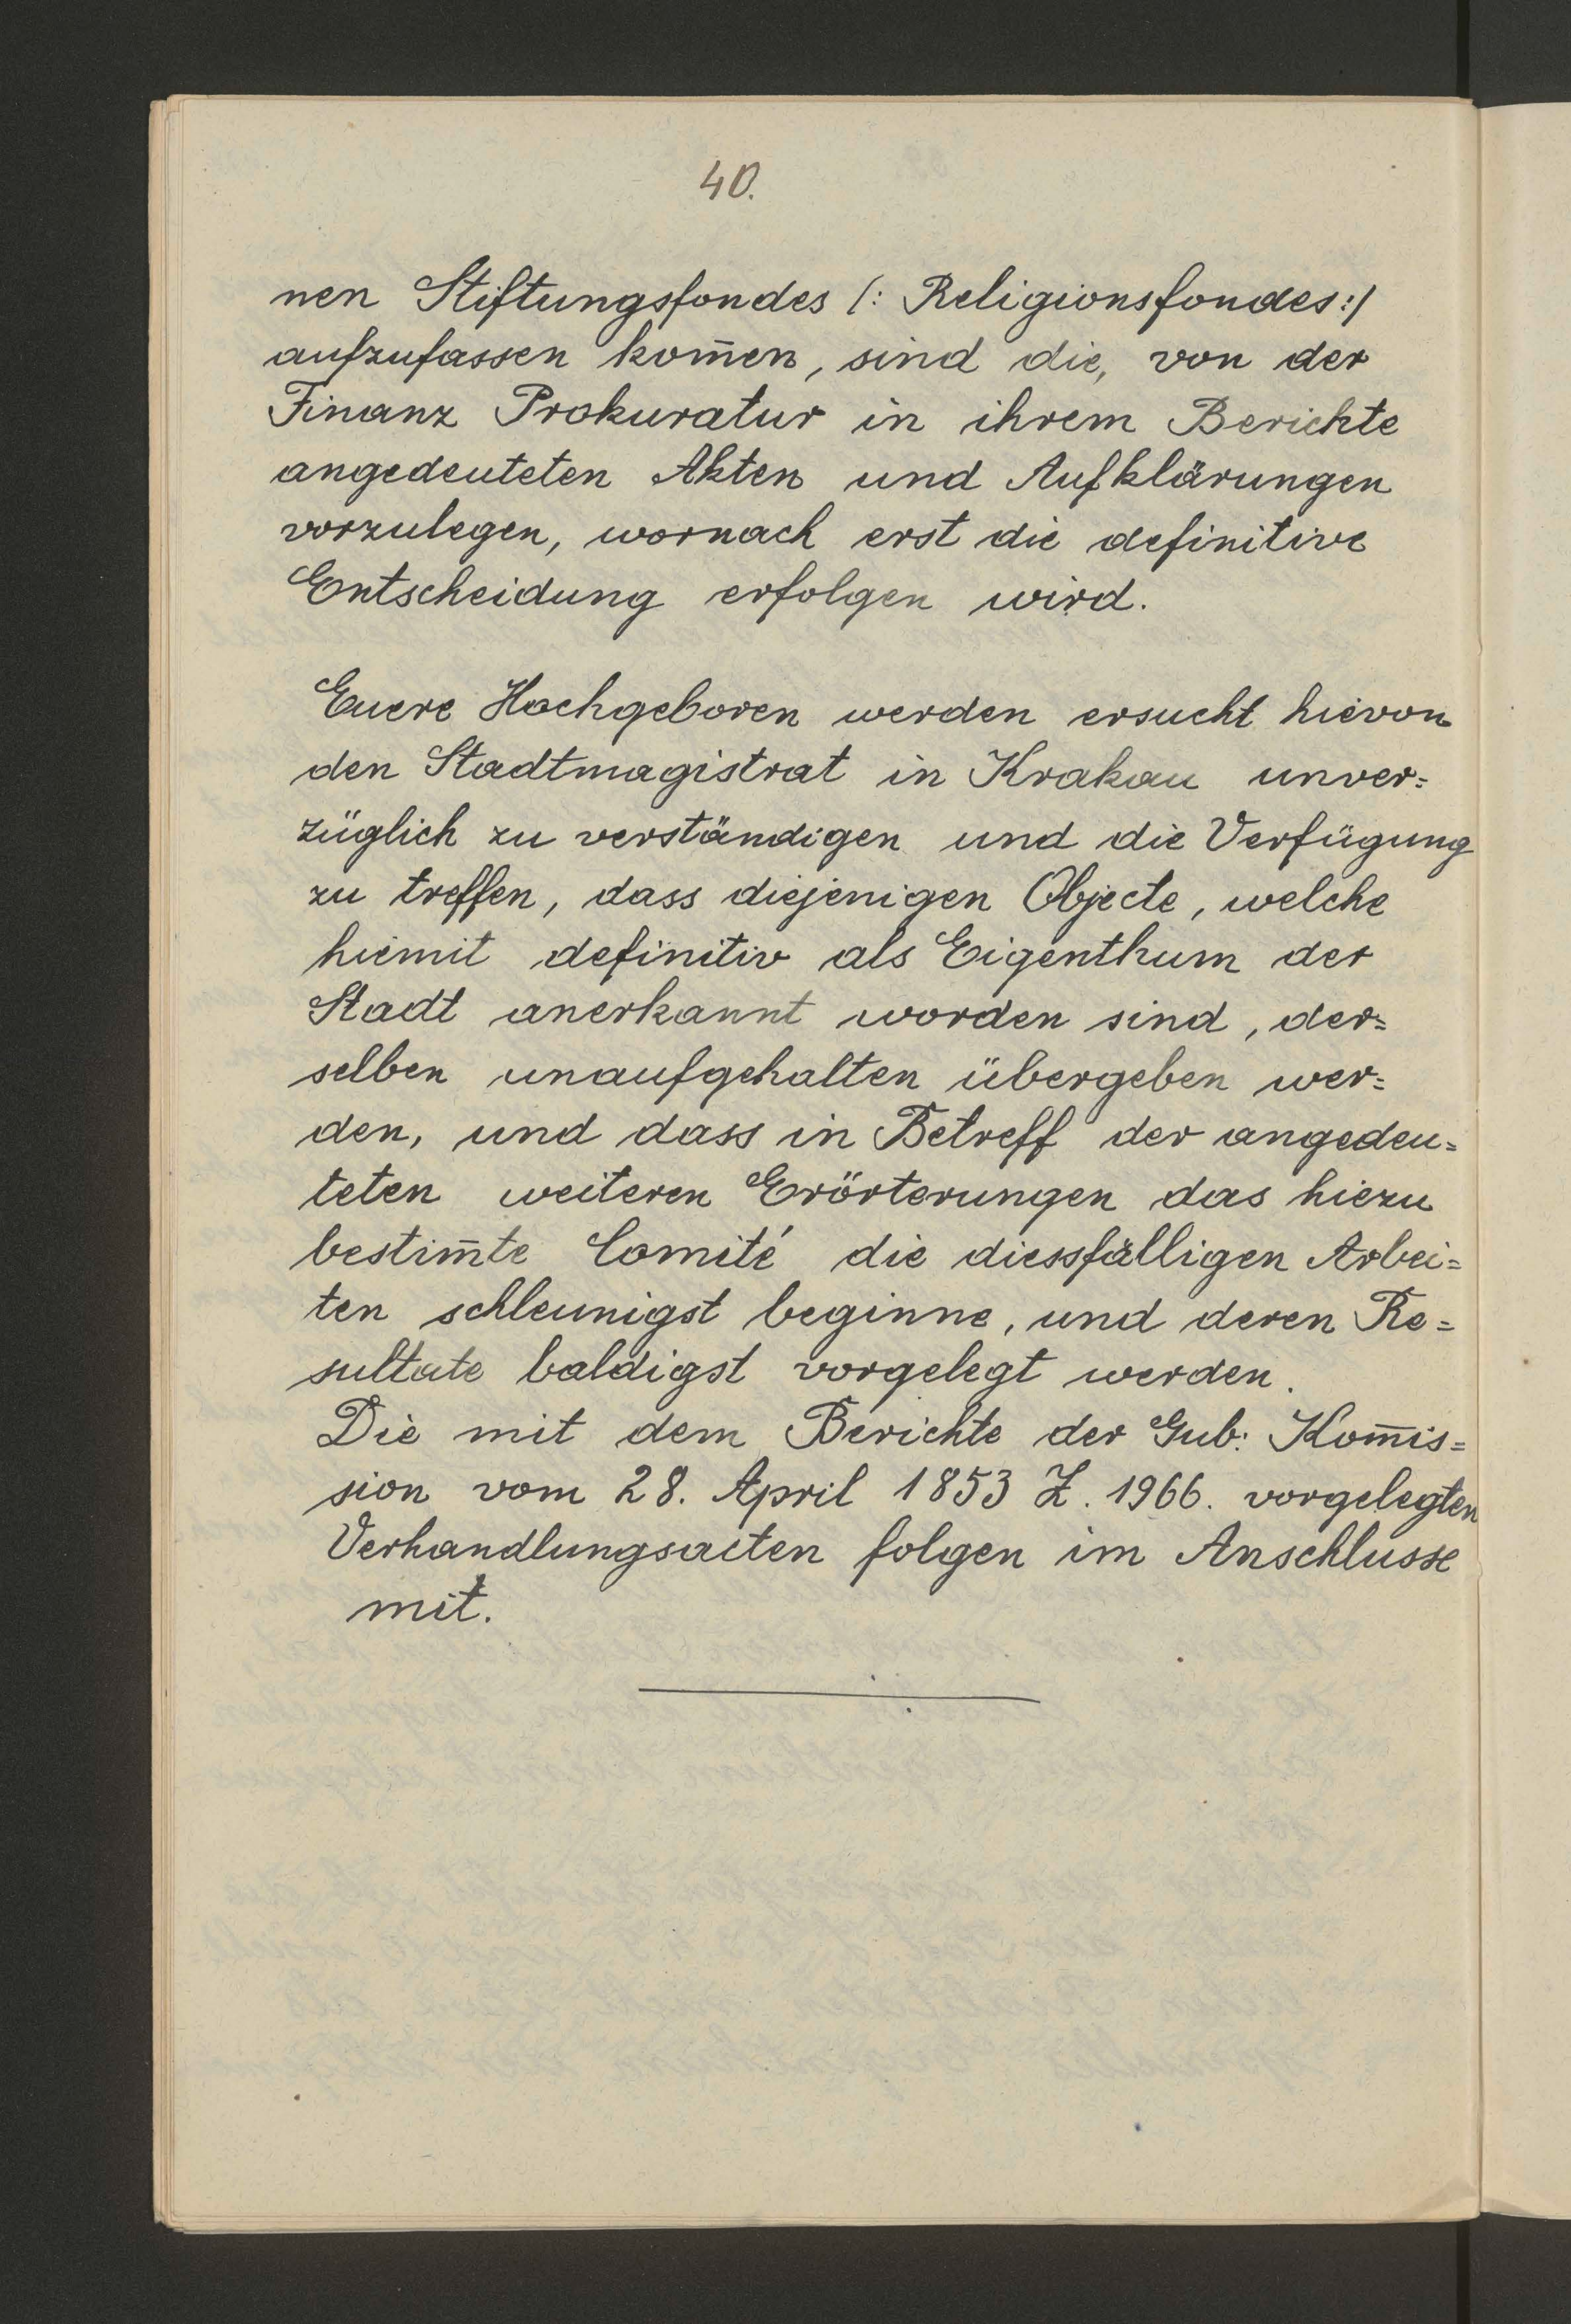 40.
nen Stiftungsfondes /: Religionsfondes :/
aufzufassen kom̅en, sind die, von der
Finanz Prokuratur in ihrem Berichte
angedeuteten Akten und Aufklärungen
vorzulegen, wornach erst die definitive
Entscheidung erfolgen wird.
Euere Hochgeboren werden ersucht hievon
den Stadtmagistrat in Krakau unver=
züglich zu verständigen und die Verfügung
zu treffen, dass diejenigen Objecte, welche
hiemit definitiv als Eigenthum der
Stadt anerkannt worden sind, der=
selben unaufgehalten übergeben wer=
den, und dass in Betreff der angedeu=
teten weiteren Erörterungen das hiezu
bestim̅te Comité die diessfälligen Arbei=
ten schleunigst beginne, und deren Re=
sultate baldigst vorgelegt werden.
Die mit dem Berichte der Gub: Kom̅is=
sion vom 28. April 1853 Z. 1966. vorgelegten
Verhandlungsacten folgen im Anschlusse
mit.